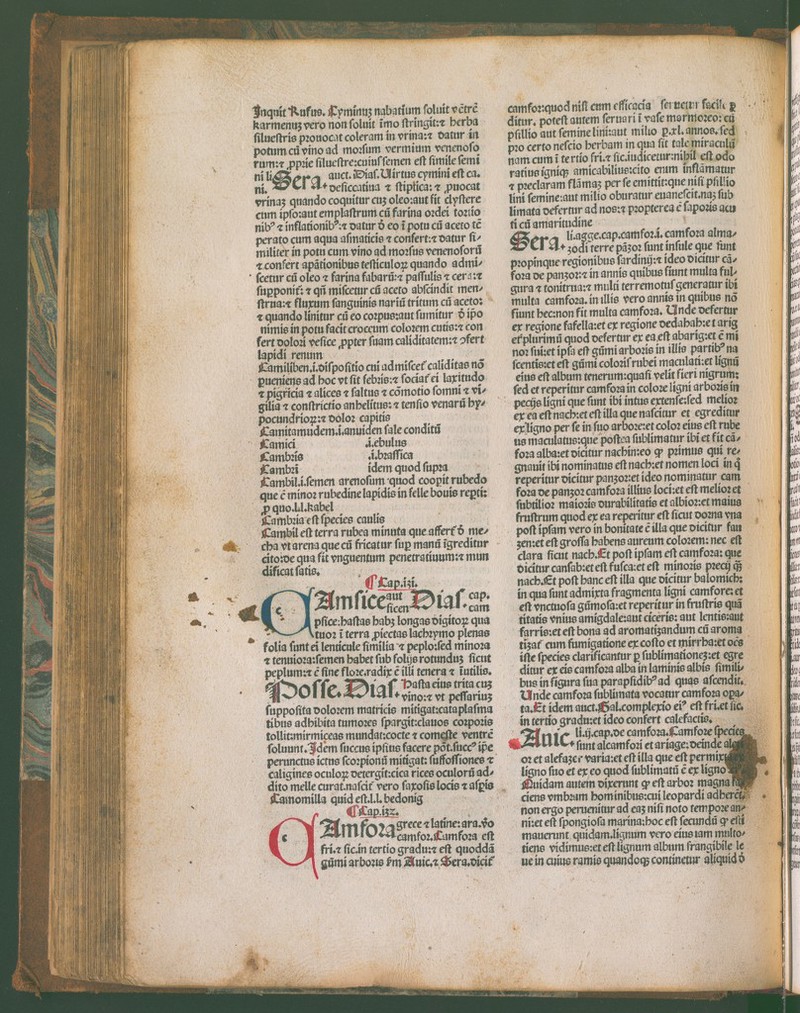 Inquit Rufus. Cyminuʒ nabatium ſoluit vētrē
karmenuʒ vero non ſoluit īmo ſtringit:⁊ herba
ſilueſtris prouocat coleram in vrina:⁊ datur in
potum cū vino ad morſum vermium venenoſo
rum:⁊ ꝓprie ſilueſtre:cuiuſ ſemen eſt ſimile ſemi
ni. Sera. auct. Diaſ. Uirtus cymini eſt ca.
deſiccatiua ⁊ ſtiptica: ⁊ ꝓuocat
vrinaʒ quando coquitur cuʒ oleo:aut fit clyſtere
cum ipſo:aut emplaſtrum cū farina ordei torrio
nibꝰ ⁊ inflationibꝰ:⁊ datur ō eo ī potu cū aceto tē
perato cum aqua aſmaticis ⁊ confert:⁊ datur ſi⸗
militer in potu cum vino ad morſus venenoſorū
⁊ confert apātionibus teſticuloꝝ quando admi⸗
ſcetur cū oleo ⁊ farina fabarū:⁊ paſſulis ⁊ cera:⁊
ſupponit̄: ⁊ qn̄ miſcetur cū aceto abſcindit men⸗
ſtrua:⁊ fluxum ſanguinis nariū tritum cū aceto:
⁊ quando linitur cū eo corpus:aut ſumitur ō ip̄o
nimis in potu facit croceum colorem cutis:⁊ con
fert dolori veſice ꝓpter ſuam caliditatem:⁊ ↄfert
lapidi renum
Camiliben.i.diſpoſitio cui admiſcet̄ caliditas nō
ꝑueniens ad hoc vt ſit febris:⁊ ſociat̄ ei laxitudo
⁊ pigricia ⁊ alices ⁊ ſaltus ⁊ cōmotio ſomni ⁊ vi⸗
gilia ⁊ conſtrictio anhelitus: ⁊ tenſio venarū hy⸗
pocundrioꝝ:⁊ dolor capitis
Camitamudem.i.anuiden ſale conditū
Camici .i.ebulus
Cambris .i.braſſica
Cambri idem quod ſupra
Cambil.i.ſemen arenoſum quod coopit rubedo
que ē minor rubedine lapidis in felle bouis repti:
ꝓ quo.l.l.kabel
Cambria eſt ſpecies caulis
Cambil eſt terra rubea minuta que affert̄ ō me⸗
cha vt arena que cū fricatur ſuꝑ manū īgreditur
cito:de qua fit vnguentum penetratiuum:⁊ mun
dificat ſatis.
¶ Cap.lʒi.
CAmſice aut ficen Diaſ. cap. cam
pſice:haſtas habʒ longas digitoꝝ qua
tuor ī terra ꝓiectas lachrymo plenas
folia ſunt ei lenticule ſimilia ⁊ peplo:ſed minora
⁊ tenuiora:ſemen habet ſub folijs rotunduʒ ſicut
peplum:⁊ ē ſine flore.radix ē illi tenera ⁊ īutilis.
Poſſe. Diaſ. Haſta eius trita cuʒ
vino:⁊ vt peſſariuʒ
ſuppoſita dolorem matricis mitigat:cataplaſma
tibus adhibita tumores ſpargit:clauos corporis
tollit:mirmiceas mundat:cocte ⁊ comeſte ventrē
ſoluunt. Idem ſuccus ipſius facere pōt.ſuccꝰ ip̄e
perunctus ictus ſcorpionū mitigat: ſuffoſſiones ⁊
caligines oculoꝝ detergit:cica rices oculorū ad⸗
dito melle curat.naſcit̄ vero ſaxoſis locis ⁊ aſpis
Camomilla quid eſt.l.l. bedonig
¶ Cap.lʒʒ.
CAmfora grece ⁊ latine: ara.ṽo
camfor. Camfora eſt
fri.⁊ ſic.in tertio gradu:⁊ eſt quoddā
gūmi arboris ẜm Auic.⁊ Sera.dicit̄
camfor:quod niſi cum efficacia ſeruetur facile ꝑ
ditur. poteſt autem ſeruari ī vaſe marmoreo: cū
pſillio aut ſemine lini:aut milio ꝑ.xl.annos. ſed
pro certo neſcio herbam in qua ſit tale miraculū
nam cum ī tertio fri.⁊ ſic.iudicetur:nihil eſt odo
ratius igniqʒ amicabilius:cito enim inflāmatur
⁊ preclaram flāmaʒ per ſe emittit:que niſi pſillio
lini ſemine:aut milio oburatur euaneſcit.naʒ ſub
limata defertur ad nos:⁊ propterea ē ſaporis acu
ti cū amaritudine
Sera. li.agge.cap.camfor.i. camfora alma⸗
zodi terre pāʒor ſunt inſule que ſunt
propinque regionibus ſardinij:⁊ ideo dicitur cā⸗
fora de panʒor:⁊ in annis quibus fiunt multa ful⸗
gura ⁊ tonitrua:⁊ multi terremotuſ generatur ibi
multa camfora. in illis vero annis in quibus nō
fiunt hec:non fit multa camfora. Unde defertur
ex regione faſella:et ex regione dedahab:et arig
et plurimū quod defertur ex ea eſt abarig:et ē mi
nor ſui:et ipſa eſt gūmi arboris in illis partibꝰ na
ſcentis:et eſt gūmi coloriſ rubei maculati:et lignū
eius eſt album tenerum:quaſi velit fieri nigrum:
ſed et reperitur camfora in colore ligni arboris in
pecijs ligni que ſunt ibi intus extenſe:ſed melior
ex ea eſt nach:et eſt illa que naſcitur et egreditur
ex ligno per ſe in ſuo arbore:et color eius eſt rube
us maculatus:que poſtea ſublimatur ibi et fit cā⸗
fora alba:et dicitur nachin:eo ꝙ primus qui re⸗
gnauit ibi nominatus eſt nach:et nomen loci in q̄
reperitur dicitur panʒor:et ideo nominatur cam
fora de panʒor camfora illius loci:et eſt melior et
ſubtilior maioris durabilitatis et albior:et maius
fruſtrum quod ex ea reperitur eſt ſicut dorna vna
poſt ipſam vero in bonitate ē illa que dicitur fau
ʒen:et eſt groſſa habens aureum colorem: nec eſt
clara ſicut nach. Et poſt ipſam eſt camfora: que
dicitur canſab:et eſt fuſca:et eſt minoris precij q̄ʒ
nach. Et poſt hanc eſt illa que dicitur balomich:
in qua ſunt admixta fragmenta ligni camfore: et
eſt vnctuoſa gūmoſa:et reperitur in fruſtris quā
titatis vnius amigdale:aut ciceris: aut lentis:aut
farris:et eſt bona ad aromatiʒandum cū aroma
tiʒat̄ cum fumigatione ex coſto et mirrha:et oēs
iſte ſpecies clarificantur ꝑ ſublimationeʒ:et egre
ditur ex eis camfora alba in laminis albis ſimili⸗
bus in figura ſua parapſidibꝰ ad quas aſcendit.
Unde camfora ſublimata vocatur camfora opa⸗
ta. Et idem auct. Gal.complexio eiꝰ eſt fri.et ſic.
in tertio gradu:et ideo confert calefactis.
Auic. li.ij.cap.de camfora. Camfore ſpecies
ſunt alcamfori et ariage: deinde
or et alefaʒer varia:et eſt illa que eſt permixta
ligno ſuo et ex eo quod ſublimatū ē ex ligno
Quidam autem dixerunt ꝙ eſt arbor magna fa
ciens vmbram hominibus:cui leopardi adheret.
non ergo peruenitur ad eaʒ niſi noto tempore an⸗
ni:et eſt ſpongioſa marina:hoc eſt ſecundū ꝙ eſti
mauerunt quidam.lignum vero eius iam multo⸗
tiens vidimus:et eſt lignum album frangibile le
ue in cuius ramis quandoqʒ continetur aliquid ō